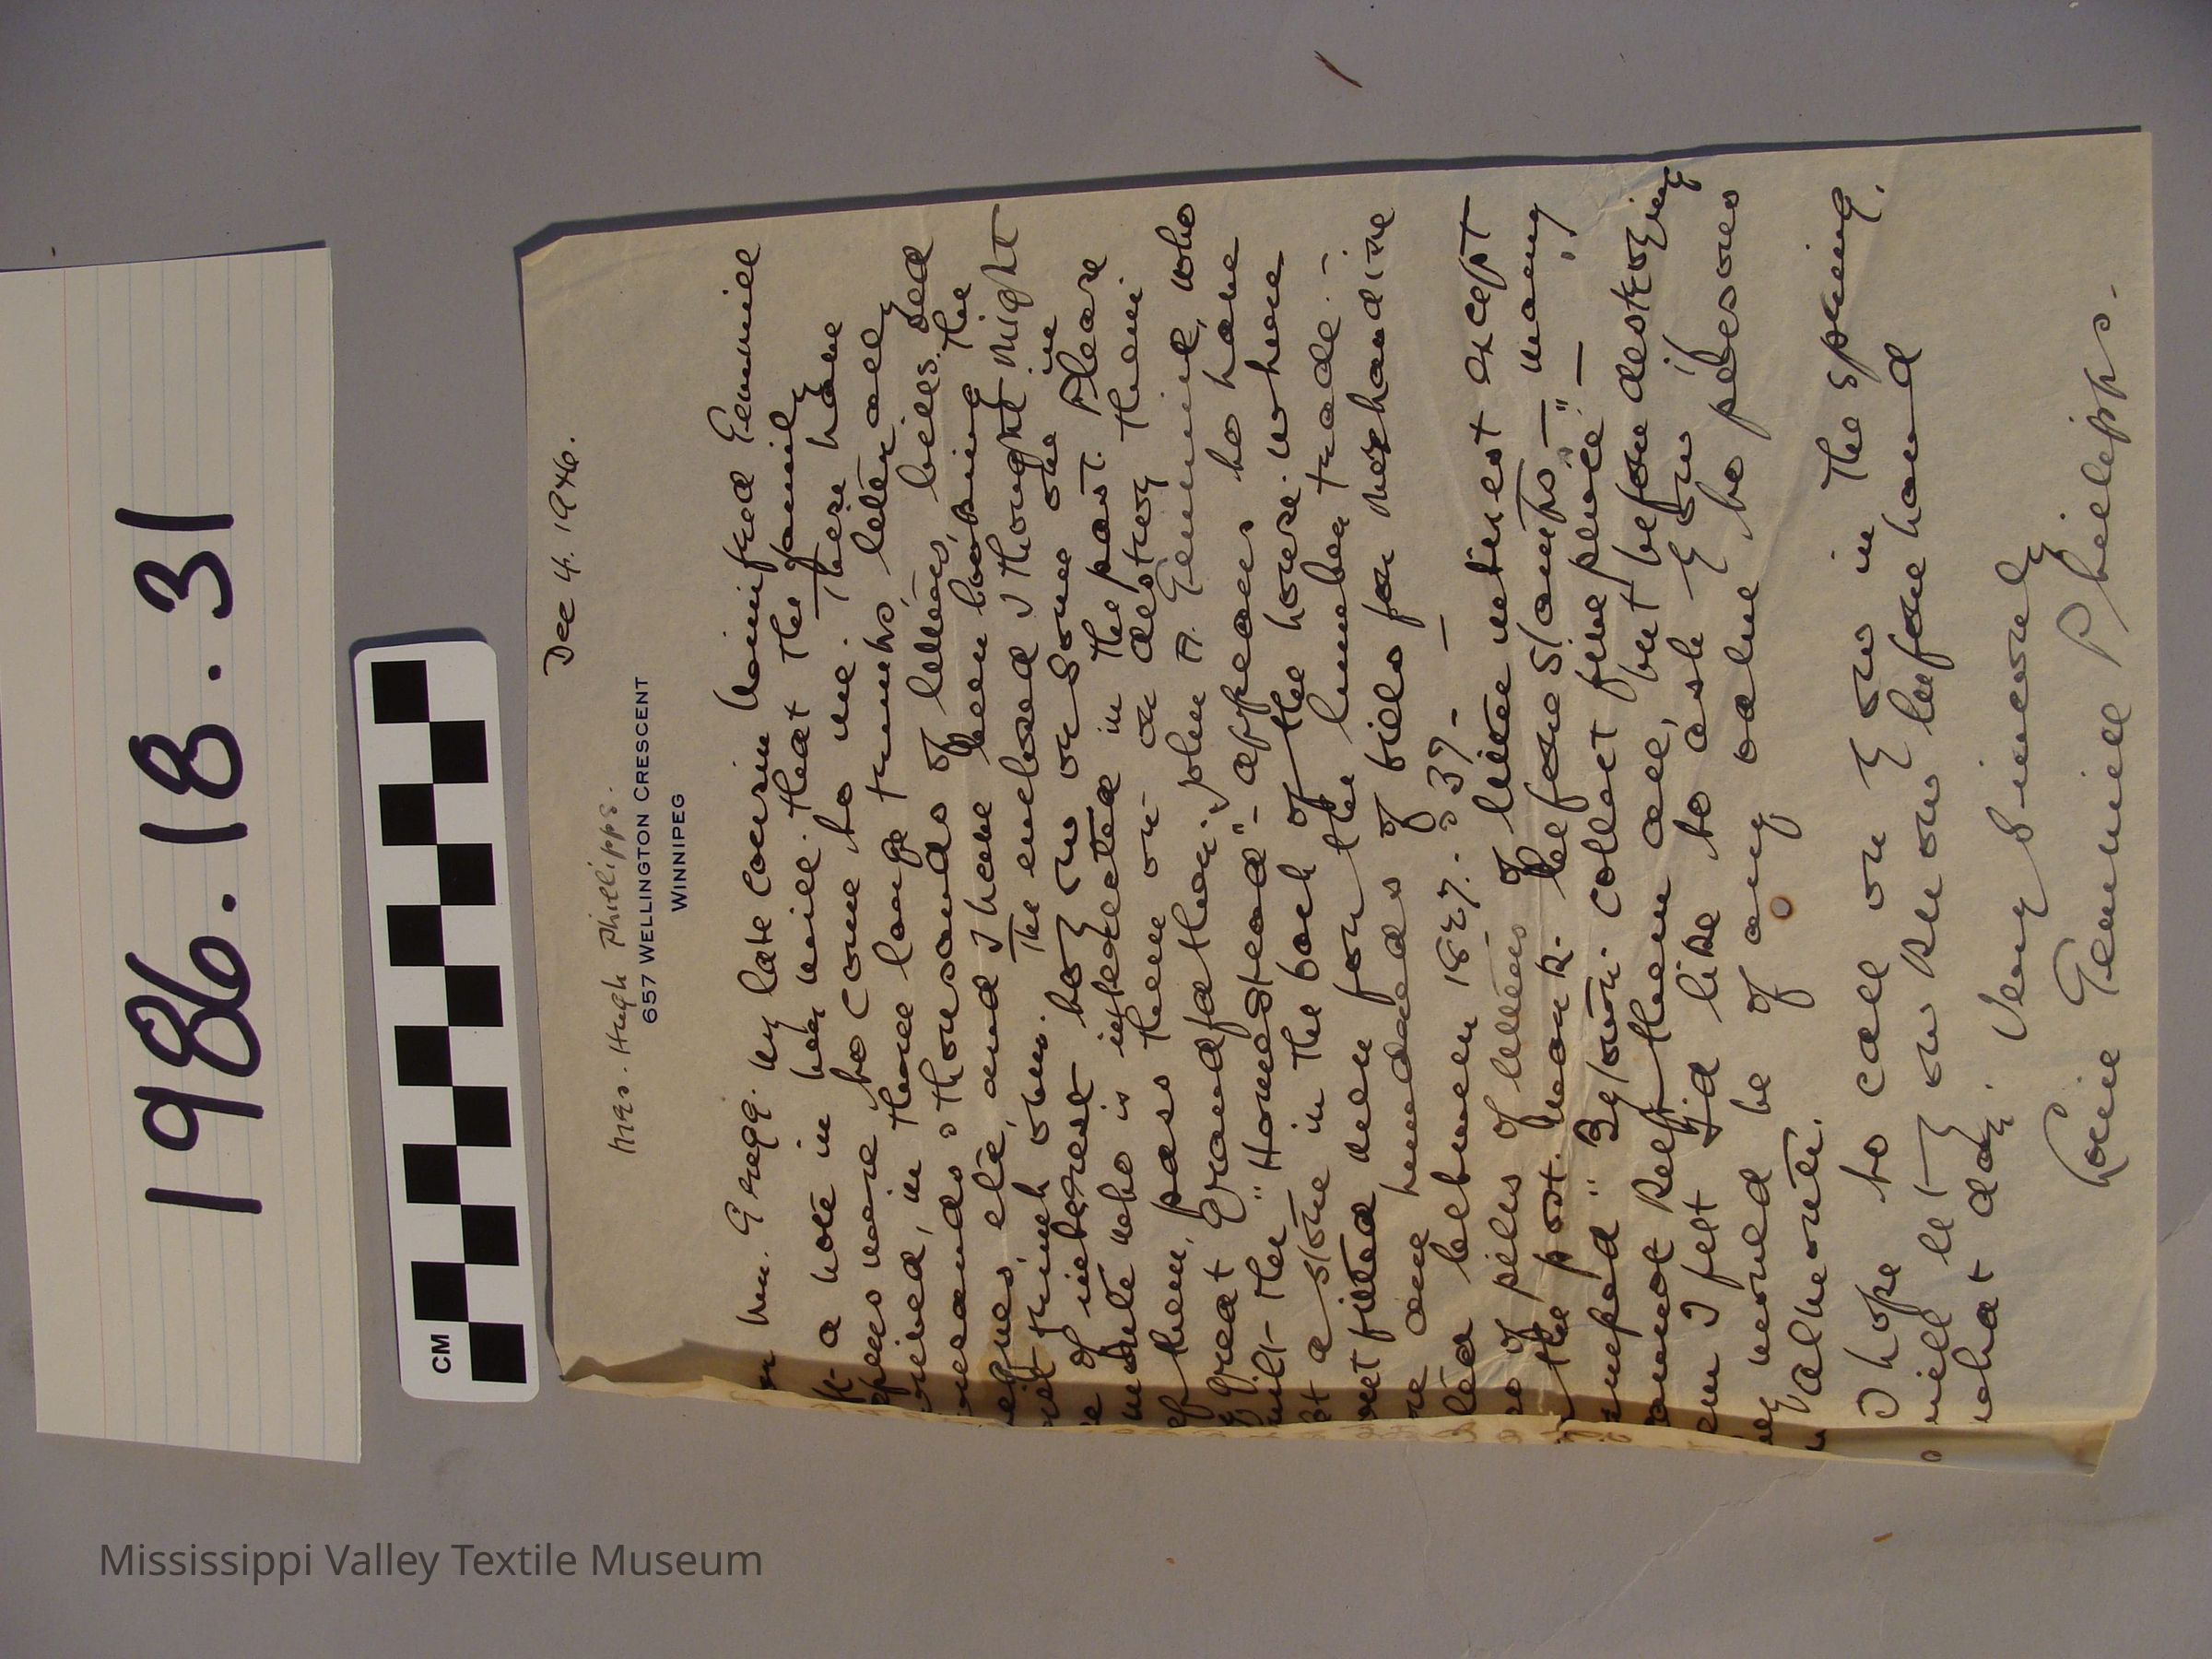 1986.18.31
CM
Dec 4. 1946.
Mrs. Hugh Phillipps.
657 WELLINGTON CRESCENT
WINNIPEG
Mr. Gregg. My late cousin Winifred Gemmill
a note in her will. that the family
were to come to me. These have
in three large trunks, letters all
thousands & thousands of letters, bills, old
etc, and I have been looking the
trunk over. The enclosed I thought might
of interest to you or some one in
who is interested in the past. Please
them, pass them on or destroy them
great Grandfather. John A. Gemmill, who
the "Homestead" - appears to have
a store in the back of the house. where
outfitted men for the lumber trade. -
are hundreds of bills for merchandise
between 1827. & 39. -
of piles of letters of little interest except
the post. mark. before stamps - many
"Bytown. Collect five pence" -
cannot keep them all, but before destroying
I felt I'd like to ask you if
would be of any value to persons
Almonte.
I hope to call on you in the spring.
will let you know beforehand
what day. Very Sincerely
Gemmill Phillipps.
Mississippi Valley Textile Museum